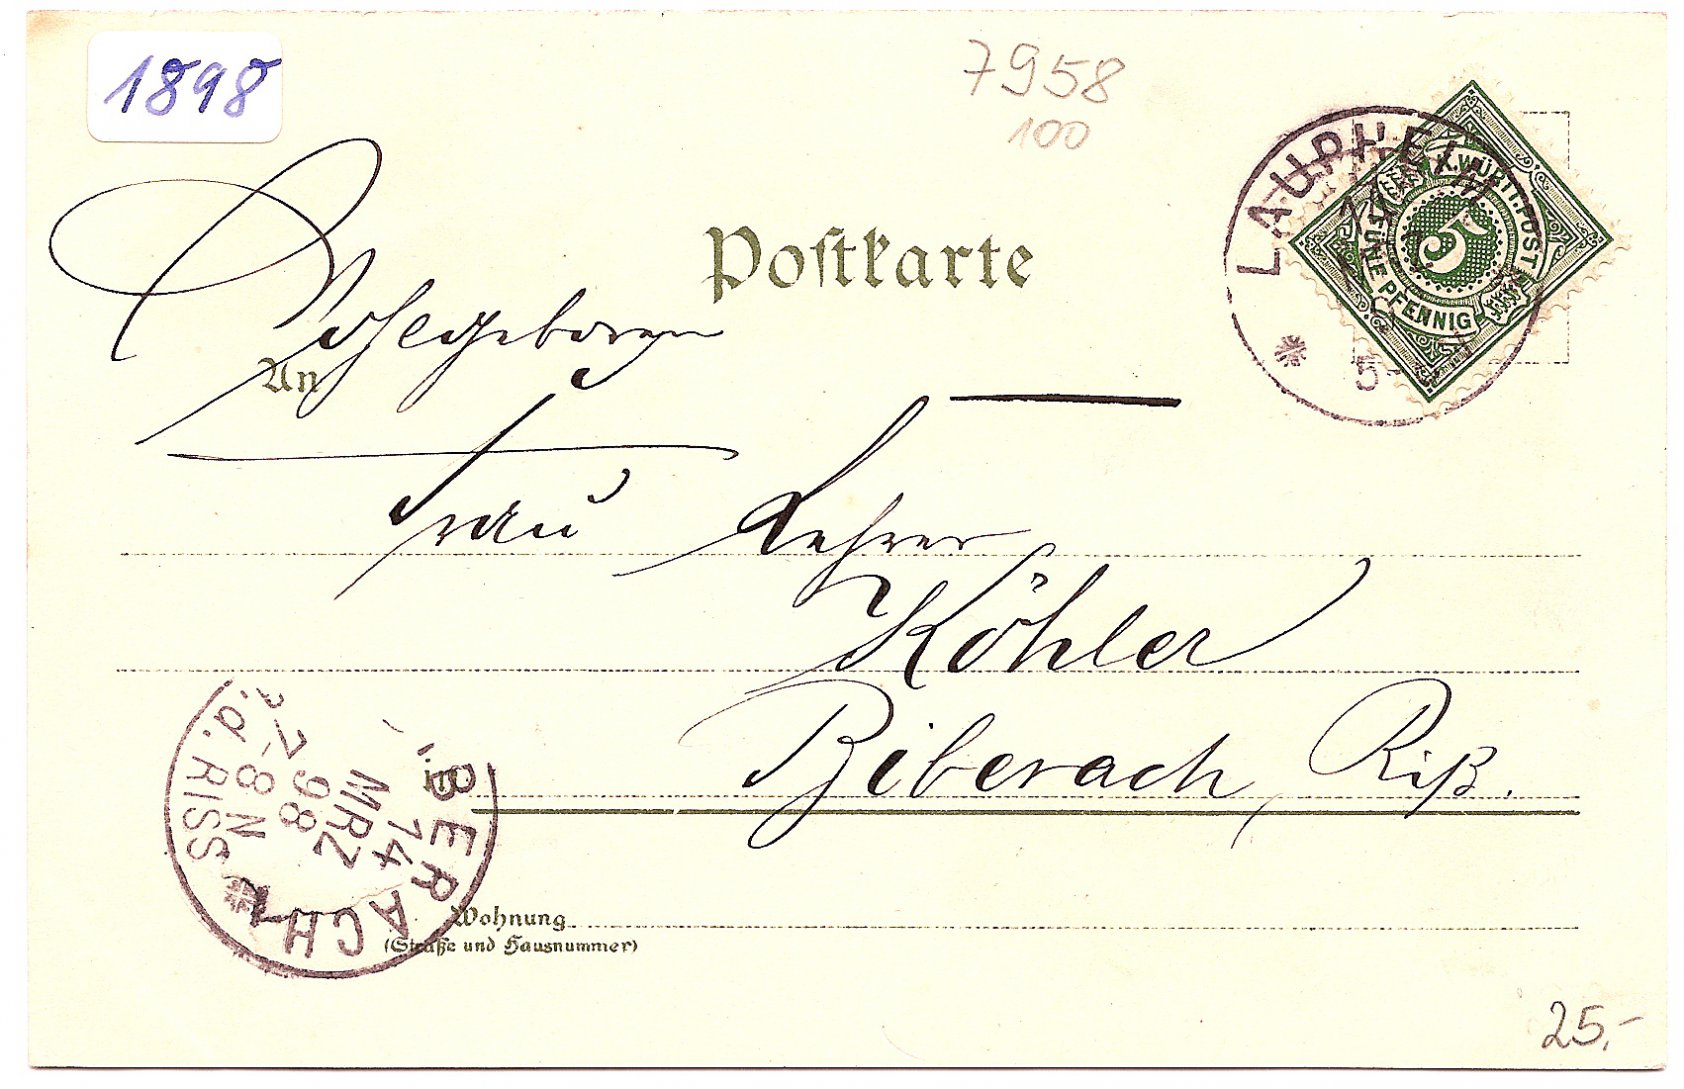 1898
7958
100
Postkarte
LAUPHEIM
K. WÜRTT. POST
5
FÜNF PFENNIG
5-
Wohlgeboren
An
Frau Lehrer
Köhler
Biberach, Riß.
BIBERACH
a.d. RISS
14
MRZ
98
7-8N
Wohnung
(Straße und Hausnummer)
25,-